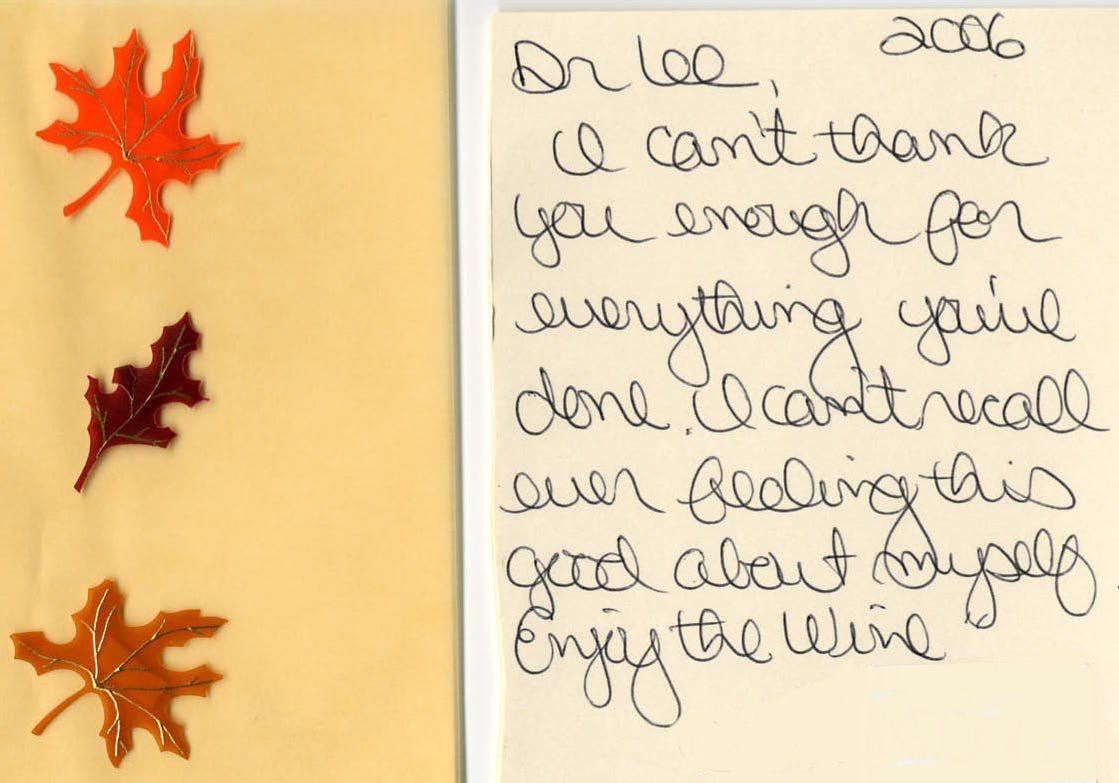 2006
Dr Lee,
I can't thank
you enough for
everything you've
done. I can't recall
ever feeling this
good about myself.
Enjoy the Wine